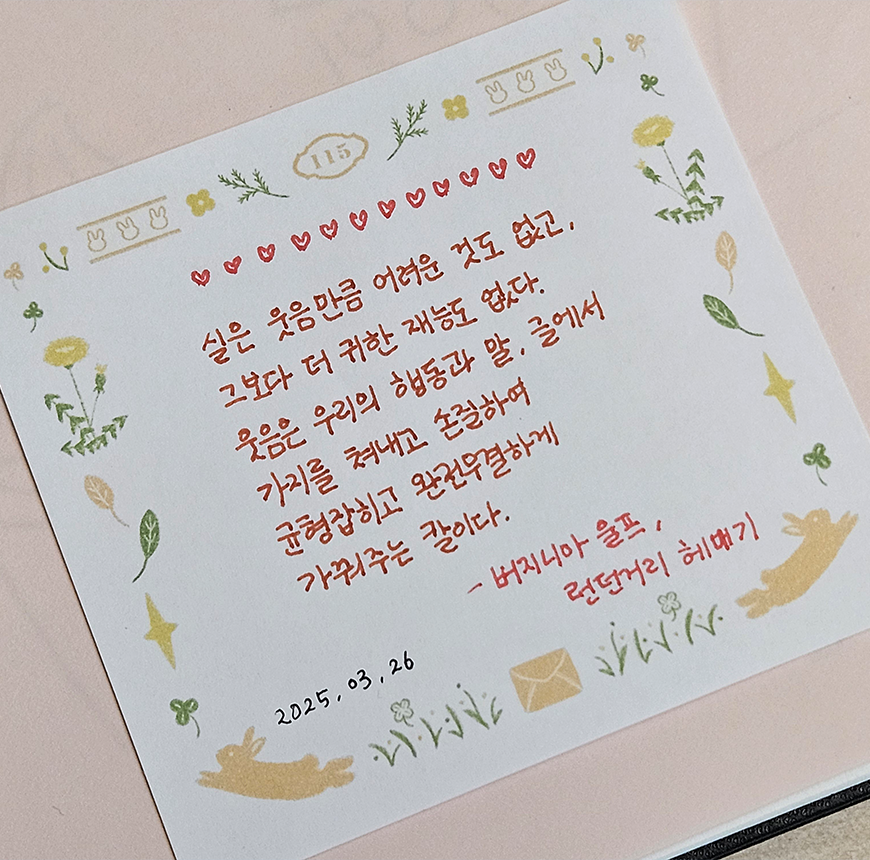 115
실은 웃음만큼 어려운 것도 없고,
그보다 더 귀한 재능도 없다.
웃음은 우리의 행동과 말, 글에서
가지를 쳐내고 손질하여
균형잡히고 완전무결하게
가꿔주는 칼이다.
- 버지니아 울프,
런던거리 헤매기
2025.03.26